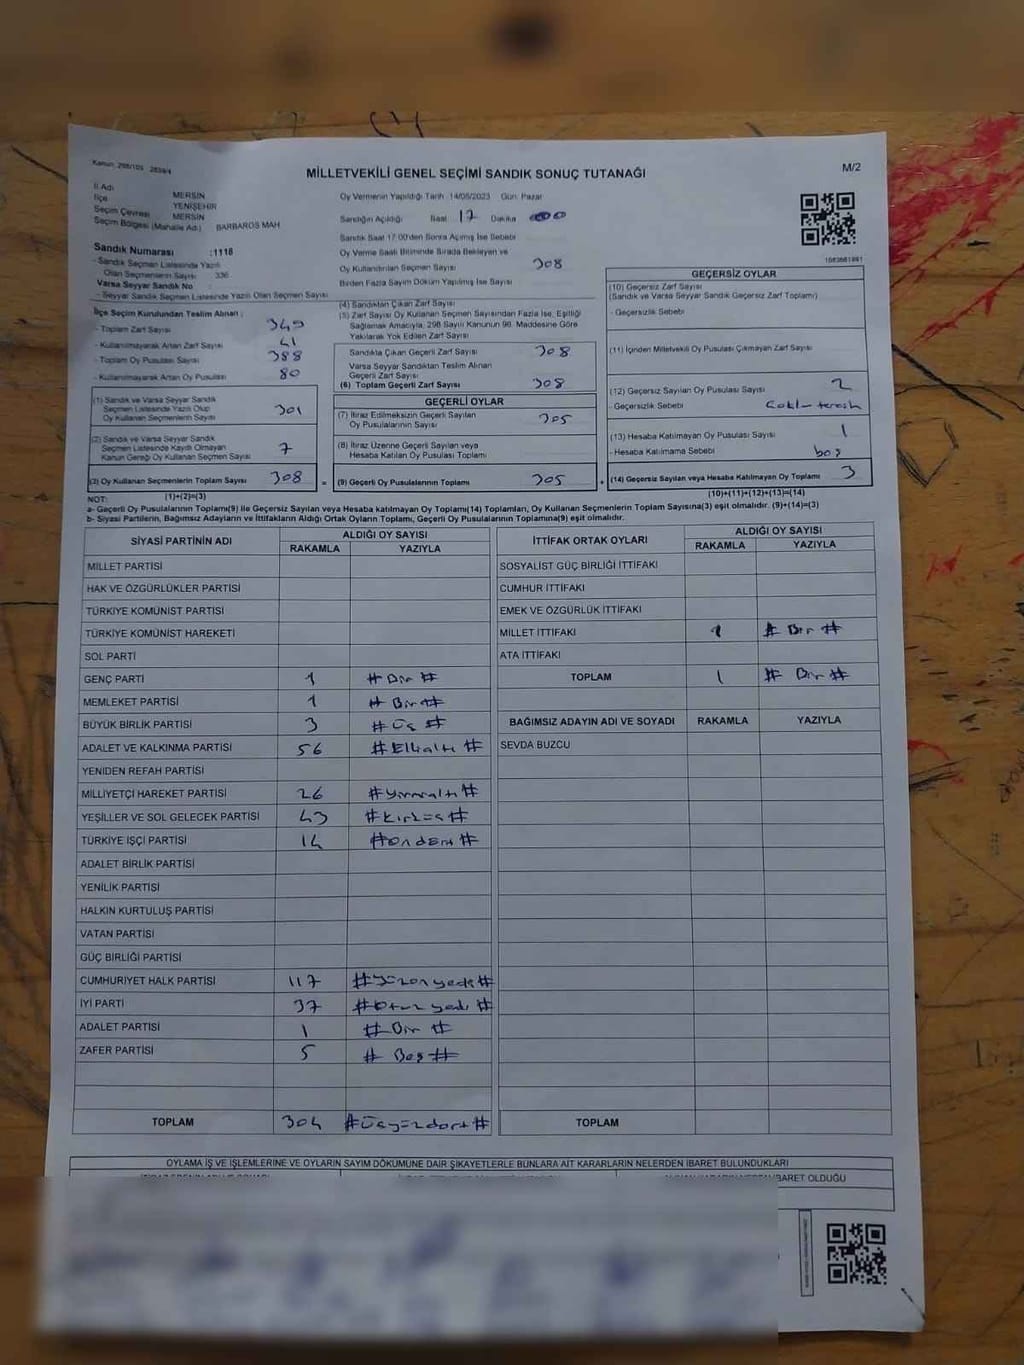 Kanun: 298/105 2839/4
MİLLETVEKİLİ GENEL SEÇİMİ SANDIK SONUÇ TUTANAĞI
M/2
İl Adı MERSİN
İlçe YENİŞEHİR
Seçim Çevresi MERSİN
Seçim Bölgesi (Mahalle Adı) BARBAROS MAH
Sandık Numarası :1118
- Sandık Seçmen Listesinde Yazılı
Olan Seçmenlerin Sayısı 336
Varsa Seyyar Sandık No
- Seyyar Sandık Seçmen Listesinde Yazılı Olan Seçmen Sayısı
Oy Vermenin Yapıldığı Tarih 14/05/2023 Gün: Pazar
Sandığın Açıldığı Saat 17 Dakika
Sandık Saat 17:00'den Sonra Açılmış İse Sebebi
Oy Verme Saati Bitiminde Sırada Bekleyen ve
Oy Kullandırılan Seçmen Sayısı 308
Birden Fazla Sayım Döküm Yapılmış İse Sayısı
İlçe Seçim Kurulundan Teslim Alınan :
- Toplam Zarf Sayısı 349
- Kullanılmayarak Artan Zarf Sayısı 41
- Toplam Oy Pusulası Sayısı 388
- Kullanılmayarak Artan Oy Pusulası 80
(1) Sandık ve Varsa Seyyar Sandık
Seçmen Listesinde Yazılı Olup
Oy Kullanan Seçmenlerin Sayısı 301
(2) Sandık ve Varsa Seyyar Sandık
Seçmen Listesinde Kayıtlı Olmayan
Kanun Gereği Oy Kullanan Seçmen Sayısı 7
(3) Oy Kullanan Seçmenlerin Toplam Sayısı 308
(4) Sandıktan Çıkan Zarf Sayısı
(5) Zarf Sayısı Oy Kullanan Seçmen Sayısından Fazla İse, Eşitliği
Sağlamak Amacıyla, 298 Sayılı Kanunun 98. Maddesine Göre
Yakılarak Yok Edilen Zarf Sayısı
Sandıkta Çıkan Geçerli Zarf Sayısı 308
Varsa Seyyar Sandıktan Teslim Alınan
Geçerli Zarf Sayısı
(6) Toplam Geçerli Zarf Sayısı 308
GEÇERLİ OYLAR
(7) İtiraz Edilmeksizin Geçerli Sayılan
Oy Pusulalarının Sayısı 305
(8) İtiraz Üzerine Geçerli Sayılan veya
Hesaba Katılan Oy Pusulası Toplamı
= (9) Geçerli Oy Pusulalarının Toplamı 305
GEÇERSİZ OYLAR
(10) Geçersiz Zarf Sayısı
(Sandık ve Varsa Seyyar Sandık Geçersiz Zarf Toplamı)
- Geçersizlik Sebebi
(11) İçinden Milletvekili Oy Pusulası Çıkmayan Zarf Sayısı
(12) Geçersiz Sayılan Oy Pusulası Sayısı 2
- Geçersizlik Sebebi
(13) Hesaba Katılmayan Oy Pusulası Sayısı 1
- Hesaba Katılmama Sebebi boş
+ (14) Geçersiz Sayılan veya Hesaba Katılmayan Oy Toplamı 3
NOT: (1)+(2)=(3)
(10)+(11)+(12)+(13)=(14)
a- Geçerli Oy Pusulaları Toplamı(9) ile Geçersiz Sayılan veya Hesaba Katılmayan Oy Toplamı(14) Toplamları, Oy Kullanan Seçmenlerin Toplam Sayısına(3) eşit olmalıdır. (9)+(14)=(3)
b- Siyasi Partilerin, Bağımsız Adayların ve İttifakların Aldığı Ortak Oyların Toplamı, Geçerli Oy Pusulalarının Toplamına(9) eşit olmalıdır.
SİYASİ PARTİNİN ADI ALDIĞI OY SAYISI
RAKAMLA YAZIYLA
MİLLET PARTİSİ
HAK VE ÖZGÜRLÜKLER PARTİSİ
TÜRKİYE KOMÜNİST PARTİSİ
TÜRKİYE KOMÜNİST HAREKETİ
SOL PARTİ
GENÇ PARTİ 1 # Bir #
MEMLEKET PARTİSİ 1 # Bir #
BÜYÜK BİRLİK PARTİSİ 3 # Üç #
ADALET VE KALKINMA PARTİSİ 56 # Ellialtı #
YENİDEN REFAH PARTİSİ
MİLLİYETÇİ HAREKET PARTİSİ 26 # Yirmialtı #
YEŞİLLER VE SOL GELECEK PARTİSİ 43 # Kırküç #
TÜRKİYE İŞÇİ PARTİSİ 14 # Ondört #
ADALET BİRLİK PARTİSİ
YENİLİK PARTİSİ
HALKIN KURTULUŞ PARTİSİ
VATAN PARTİSİ
GÜÇ BİRLİĞİ PARTİSİ
CUMHURİYET HALK PARTİSİ 117 # Yüzonyedi #
İYİ PARTİ 37 # Otuzyedi #
ADALET PARTİSİ 1 # Bir #
ZAFER PARTİSİ 5 # Beş #
TOPLAM 304 # Üçyüzdört #
İTTİFAK ORTAK OYLARI ALDIĞI OY SAYISI
RAKAMLA YAZIYLA
SOSYALİST GÜÇ BİRLİĞİ İTTİFAKI
CUMHUR İTTİFAKI
EMEK VE ÖZGÜRLÜK İTTİFAKI
MİLLET İTTİFAKI 1 # Bir #
ATA İTTİFAKI
TOPLAM 1 # Bir #
BAĞIMSIZ ADAYIN ADI VE SOYADI RAKAMLA YAZIYLA
SEVDA BUZCU
TOPLAM
OYLAMA İŞ VE İŞLEMLERİNE VE OYLARIN SAYIM DÖKÜMÜNE DAİR ŞİKAYETLERLE BUNLARA AİT KARARLARIN NELERDEN İBARET BULUNDUKLARI
İBARET OLDUĞU